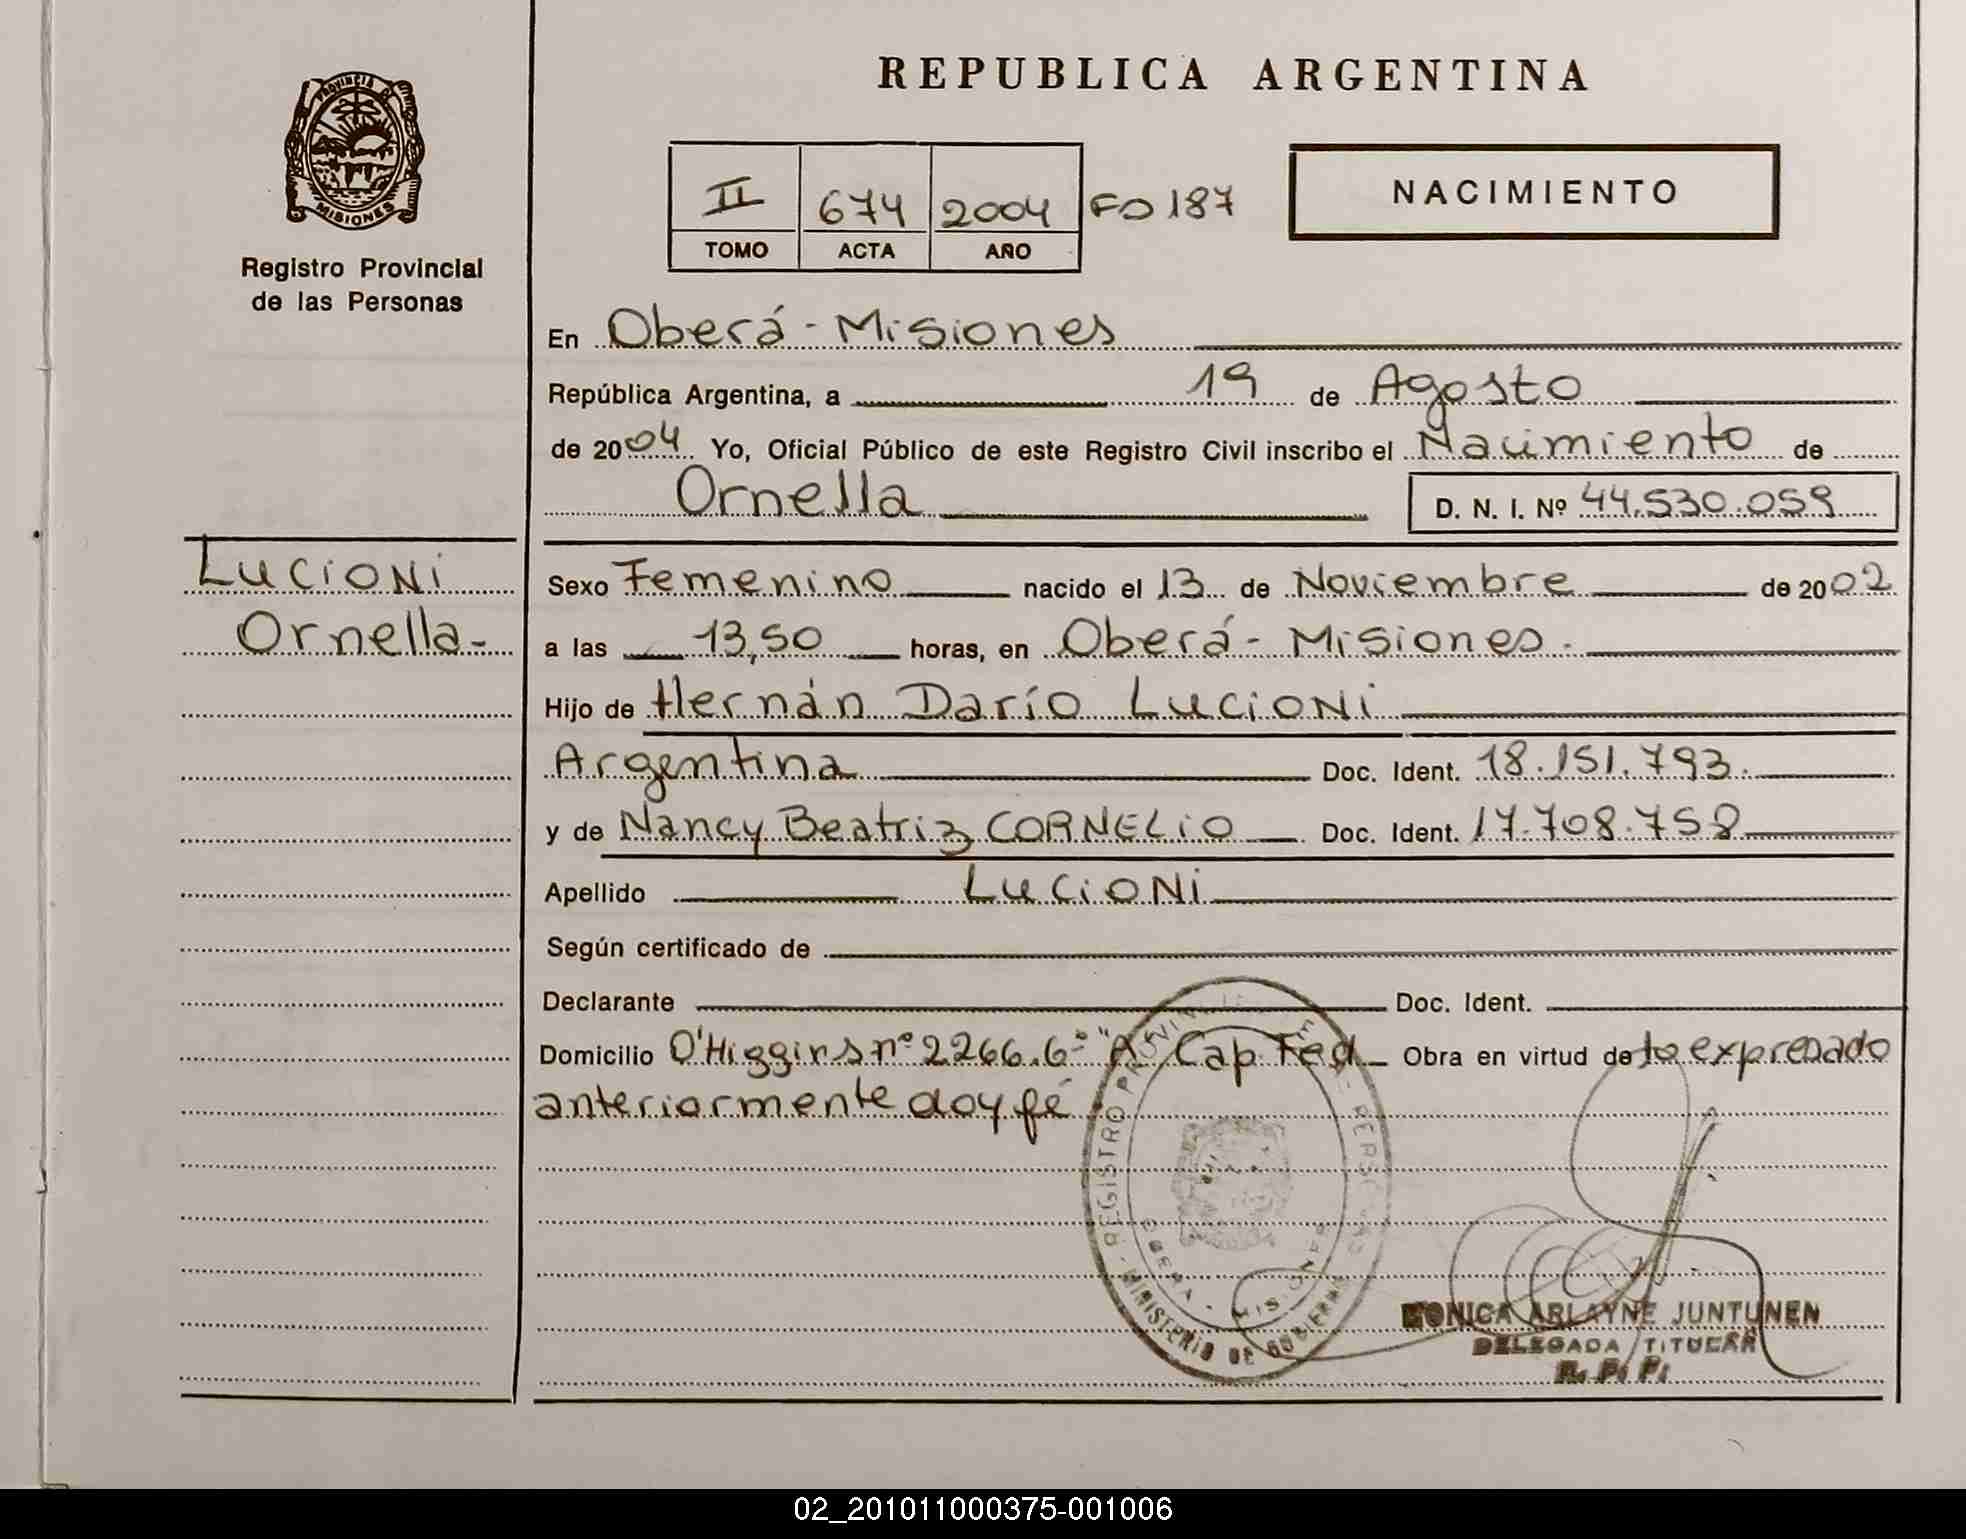 REPUBLICA ARGENTINA
PROVINCIA DE
MISIONES
Registro Provincial
de las Personas
II 674 2004 Fo 187
TOMO ACTA AÑO
NACIMIENTO
En Oberá - Misiones
República Argentina, a 19 de Agosto
de 2004 Yo, Oficial Público de este Registro Civil inscribo el Nacimiento de
Ornella D. N. I. Nº 44.530.059
Lucioni
Ornella-
Sexo Femenino nacido el 13 de Noviembre de 2002
a las 13,50 horas, en Oberá - Misiones.
Hijo de Hernán Darío Lucioni
Argentina Doc. Ident. 18.151.793.
y de Nancy Beatriz CORNELIO Doc. Ident. 17.708.758
Apellido Lucioni
Según certificado de
Declarante Doc. Ident.
Domicilio O'Higgins nº 2266.6º "A" Cap. Fed. Obra en virtud de lo expresado
anteriormente doy fé
REGISTRO PROVINCIAL PERSONAS
OBERA - MISIONES
MINISTERIO DE GOBIERNO
MONICA ARLAYNE JUNTUNEN
DELEGADA TITULAR
R. P. P.
02_201011000375-001006